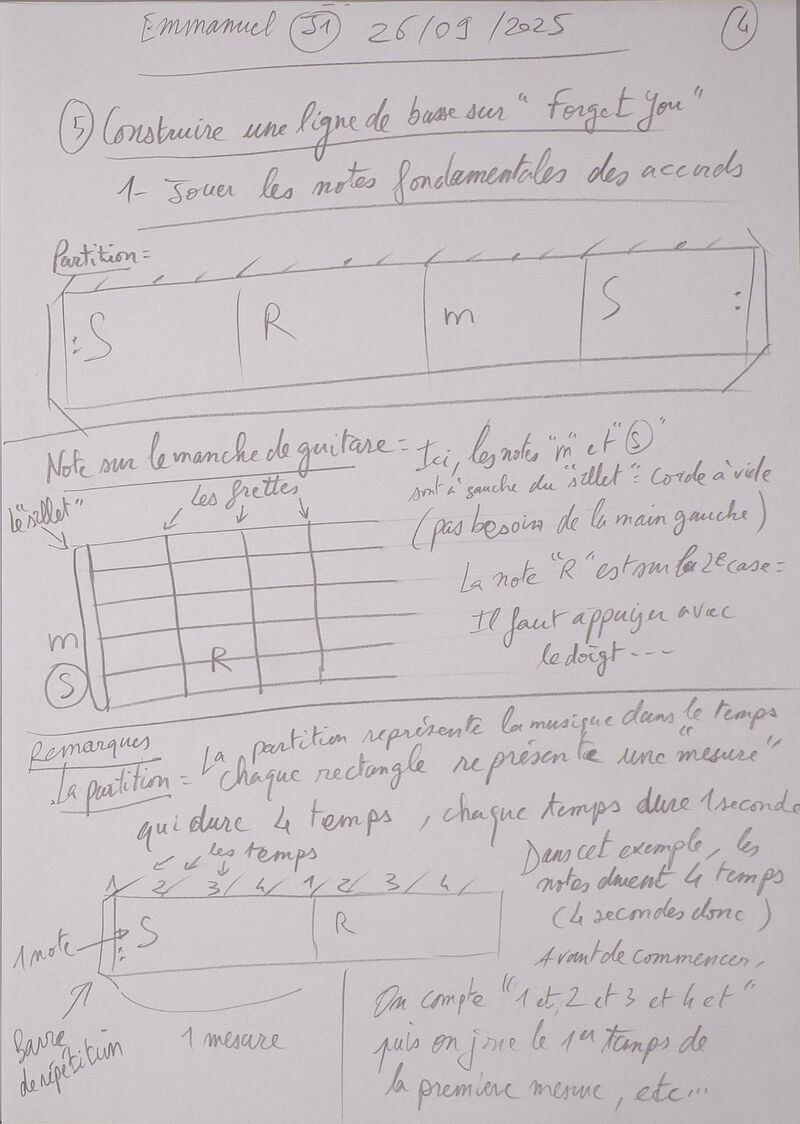 Emmanuel J1 26/09/2025
4
5 Construire une ligne de basse sur "Forget You"
1- Jouer les notes fondamentales des accords
Partition =
S R m S
Note sur le manche de guitare =
Ici, les notes "m" et "S"
sont à gauche du "sillet" = corde à vide
(pas besoin de la main gauche)
La note "R" est sur la 2e case =
Il faut appuyer avec
le doigt ---
Le "sillet"
Les frettes
m
S
R
Remarques
La partition = La partition représente la musique dans le temps
chaque rectangle représente une "mesure"
qui dure 4 temps, chaque temps dure 1 seconde
les temps
1/ 2/ 3/ 4/ 1/ 2/ 3/ 4/
S R
1 note
Barre
de répétition
1 mesure
Dans cet exemple, les
notes durent 4 temps
(4 secondes donc)
Avant de commencer,
On compte "1 et, 2 et 3 et 4 et"
puis on joue le 1er temps de
la première mesure, etc...